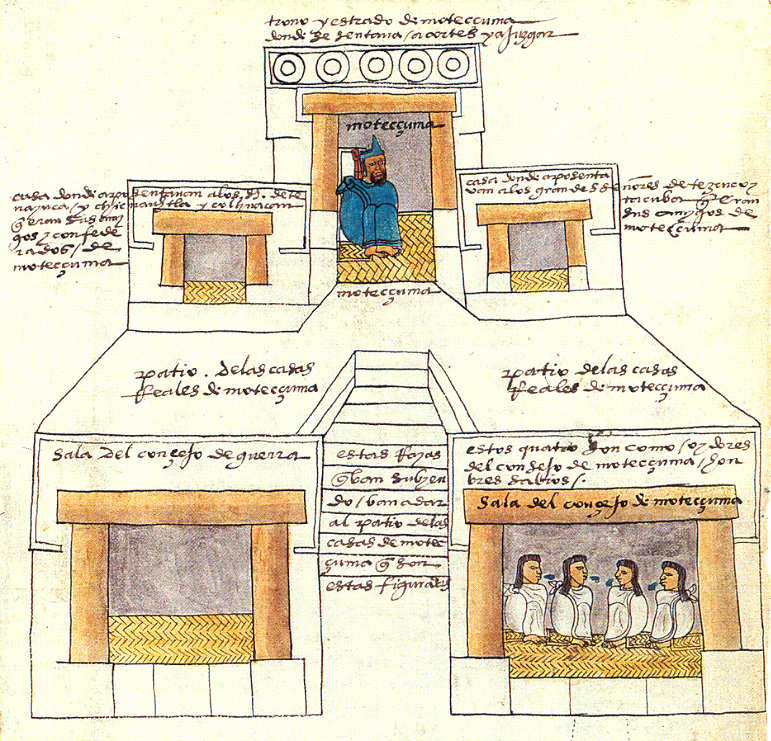 trono y estrado de moteccuma
donde se sentava / a cortes y a juzgar
moteccuma
moteccuma
casa donde aposentavan a los s.s. de te
nayuca / y chicnauhtla y colhuacan
q̃ eran sus ami
gos y confede
rados / de
moteccuma
casa donde aposenta
van a los grandes señores de tezcuco y
tacuba q̃ eran
sus amigos de
moteccuma
patio . de las casas
Reales de moteccuma
patio de las casas
Reales de moteccuma
Sala del consejo de guerra
estas Rayas
q̃ ban subyen
do / ban a dar
al patio de las
casas de motec
çuma q̃ son
estas figuradas
estos quatro son como / oydores
del consejo de moteccuma / hon
bres sabios /.
Sala del consejo de moteccuma